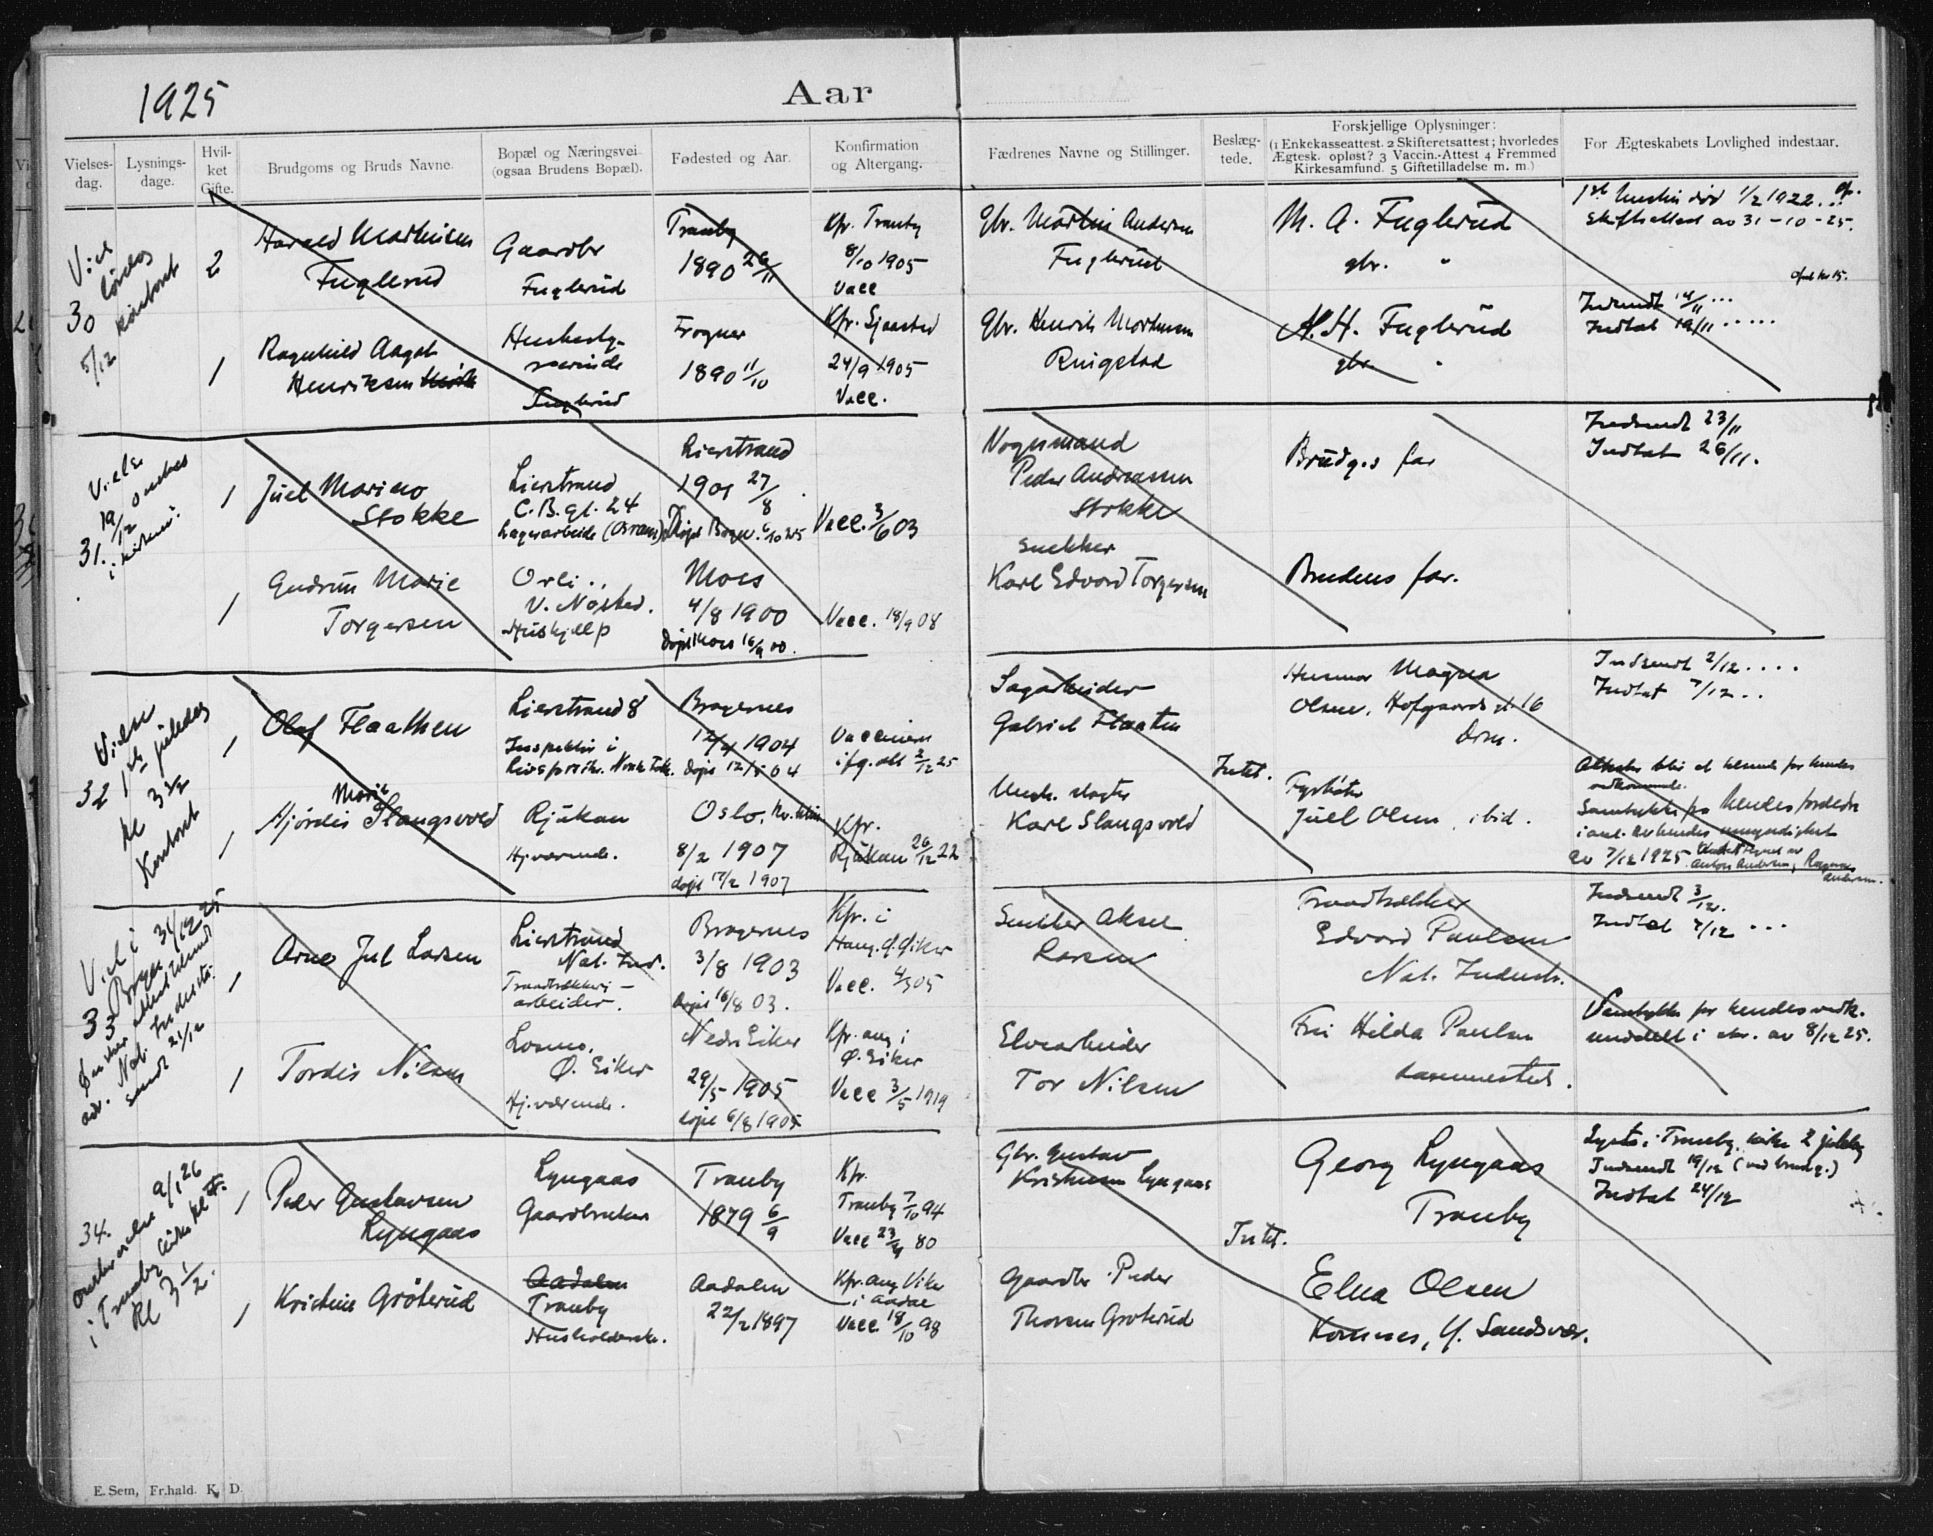 1925
Aar
Vielses-
dag.
Lysnings-
dage.
Hvil-
ket
Gifte.
Brudgoms og Bruds Navne.
Bopæl og Næringsvei
(ogsaa Brudens Bopæl).
Fødested og Aar.
Konfirmation
og Altergang.
Fædrenes Navne og Stillinger.
Beslæg-
tede.
Forskjellige Oplysninger:
(1 Enkekasseattest. 2 Skifteretsattest; hvorledes
Ægtesk. opløst? 3 Vaccin.-Attest 4 Fremmed
Kirkesamfund. 5 Giftetilladelse m. m.)
For Ægteskabets Lovlighed indestaar.
30
5/12 kontoret
2
Harald Mathisen
Fuglerud
Gaardbr
Fuglerud
Tranby
1890 26/11
Kfr. Tranby
8/10 1905
Vacc
Gbr. Martin Andersen
Fuglerud
M. A. Fuglerud
gbr. "
1st hustru død 1/2 1922.
Skifteattest av 31-10-25.
1
Ragnhild Aagot
Henriksen
Husbesty-
rerinde
Fuglerud
Frogner
1890 11/10
Kfr. Sjaastad
24/9 1905
Vacc.
Gbr. Henrik Mortensen
Ringstad
H. H. Fuglerud
gbr. "
Indsendt 14/11 ...
Indtat 19/11 .....
31.
19/12
i kirken
1
Juel Marino
Stokke
Lierstrand
C. B. gt. 24
Lagerarbeide (Osram)
Lierstrand
1901 27/8
Vacc. 3/6 03
Vognmand
Peder Andreassen
Stokke
Brudg.s far
Indsendt 23/11
Indtat 26/11.
1
Gudrun Marie
Torgersen
V. Nøsted.
Hushjelp
Moss
4/8 1900
døpt Moss 16/9 00.
Vacc. 18/9 08
Snekker
Karl Edvard Torgersen
Brudens far.
32 1ste juledag
kl 3 1/2
Kontoret
1
Olaf Flaathen
Lierstrand 8
Inspektør i
Bragernes
12/4 1904
døpt 12/5 04
Vaccinen
ifg. att 2/12 25
Sagarbeider
Gabriel Flaaten
Intet.
Husmor Magna
Olsen, Hofgaards gt. 16
Drm.
Indsendt 2/12 ....
Indtat 7/12 ..
1
Hjørdis Marie Slangsvold
Rjukan
Hj.værende.
Oslo,
8/2 1907
døpt 17/2 1907
Kfr.
Rjukan 26/12 22
Karl Slangsvold
Fyrbøter
Juel Olsen, ibid.
Samtykke fra hendes foreldre
av 7/12 1925
33
1
Arne Jul Larsen
Lierstrand
Nat. Ind.
Traadtrækkeri-
arbeider.
Bragernes
3/8 1903
døpt 16/8 03.
Kfr. i
Haug, Ø. Eiker
Vacc. 4/5 05
Snekker Aksel
Larsen
Traadtrækker
Edvard Paulsen
Nat. Industr.
Indsendt 3/12.
Indtat 7/12 ...
Nat. Industr.
sendt 21/12
1
Tordis Nilsen
Ø. Eiker
Hj.værende.
Nedre Eiker
29/5 1905
døpt 6/8 1905
Kfr. aug i
Ø. Eiker
Vacc 3/5 1919
Elvearbeider
Tor Nilsen
Fru Hilda Paulsen
sammesteds.
Samtykke for hendes vedk.
meddelt i skr. av 8/12 25.
34.
i Tranby kirke
kl 3 1/2.
1
Peder Gustavsen
Lyngaas
Lyngaas
Gaardbruker
Tranby
1879 6/9
Kfr.
Tranby 7/10 94
Vacc 80
Gbr. Gustav
Kristensen Lyngaas
Intet.
Georg Lyngaas
Tranby
Lyst i Tranby kirke 2 juledag
Indsendt 19/12 (ved brudg.)
Indtat 24/12
1
Kristine Grøterud
Aadalen
Tranby
Husholderske.
Aadalen
22/2 1897
Kfr. aug Viker
i Aadal
Vacc 18/10 98
Gaardbr. Peder
Thorsen Grøterud
Elna Olsen
Komnes, Y. Sandsvær.
E. Sem, Fr.hald. K. D.